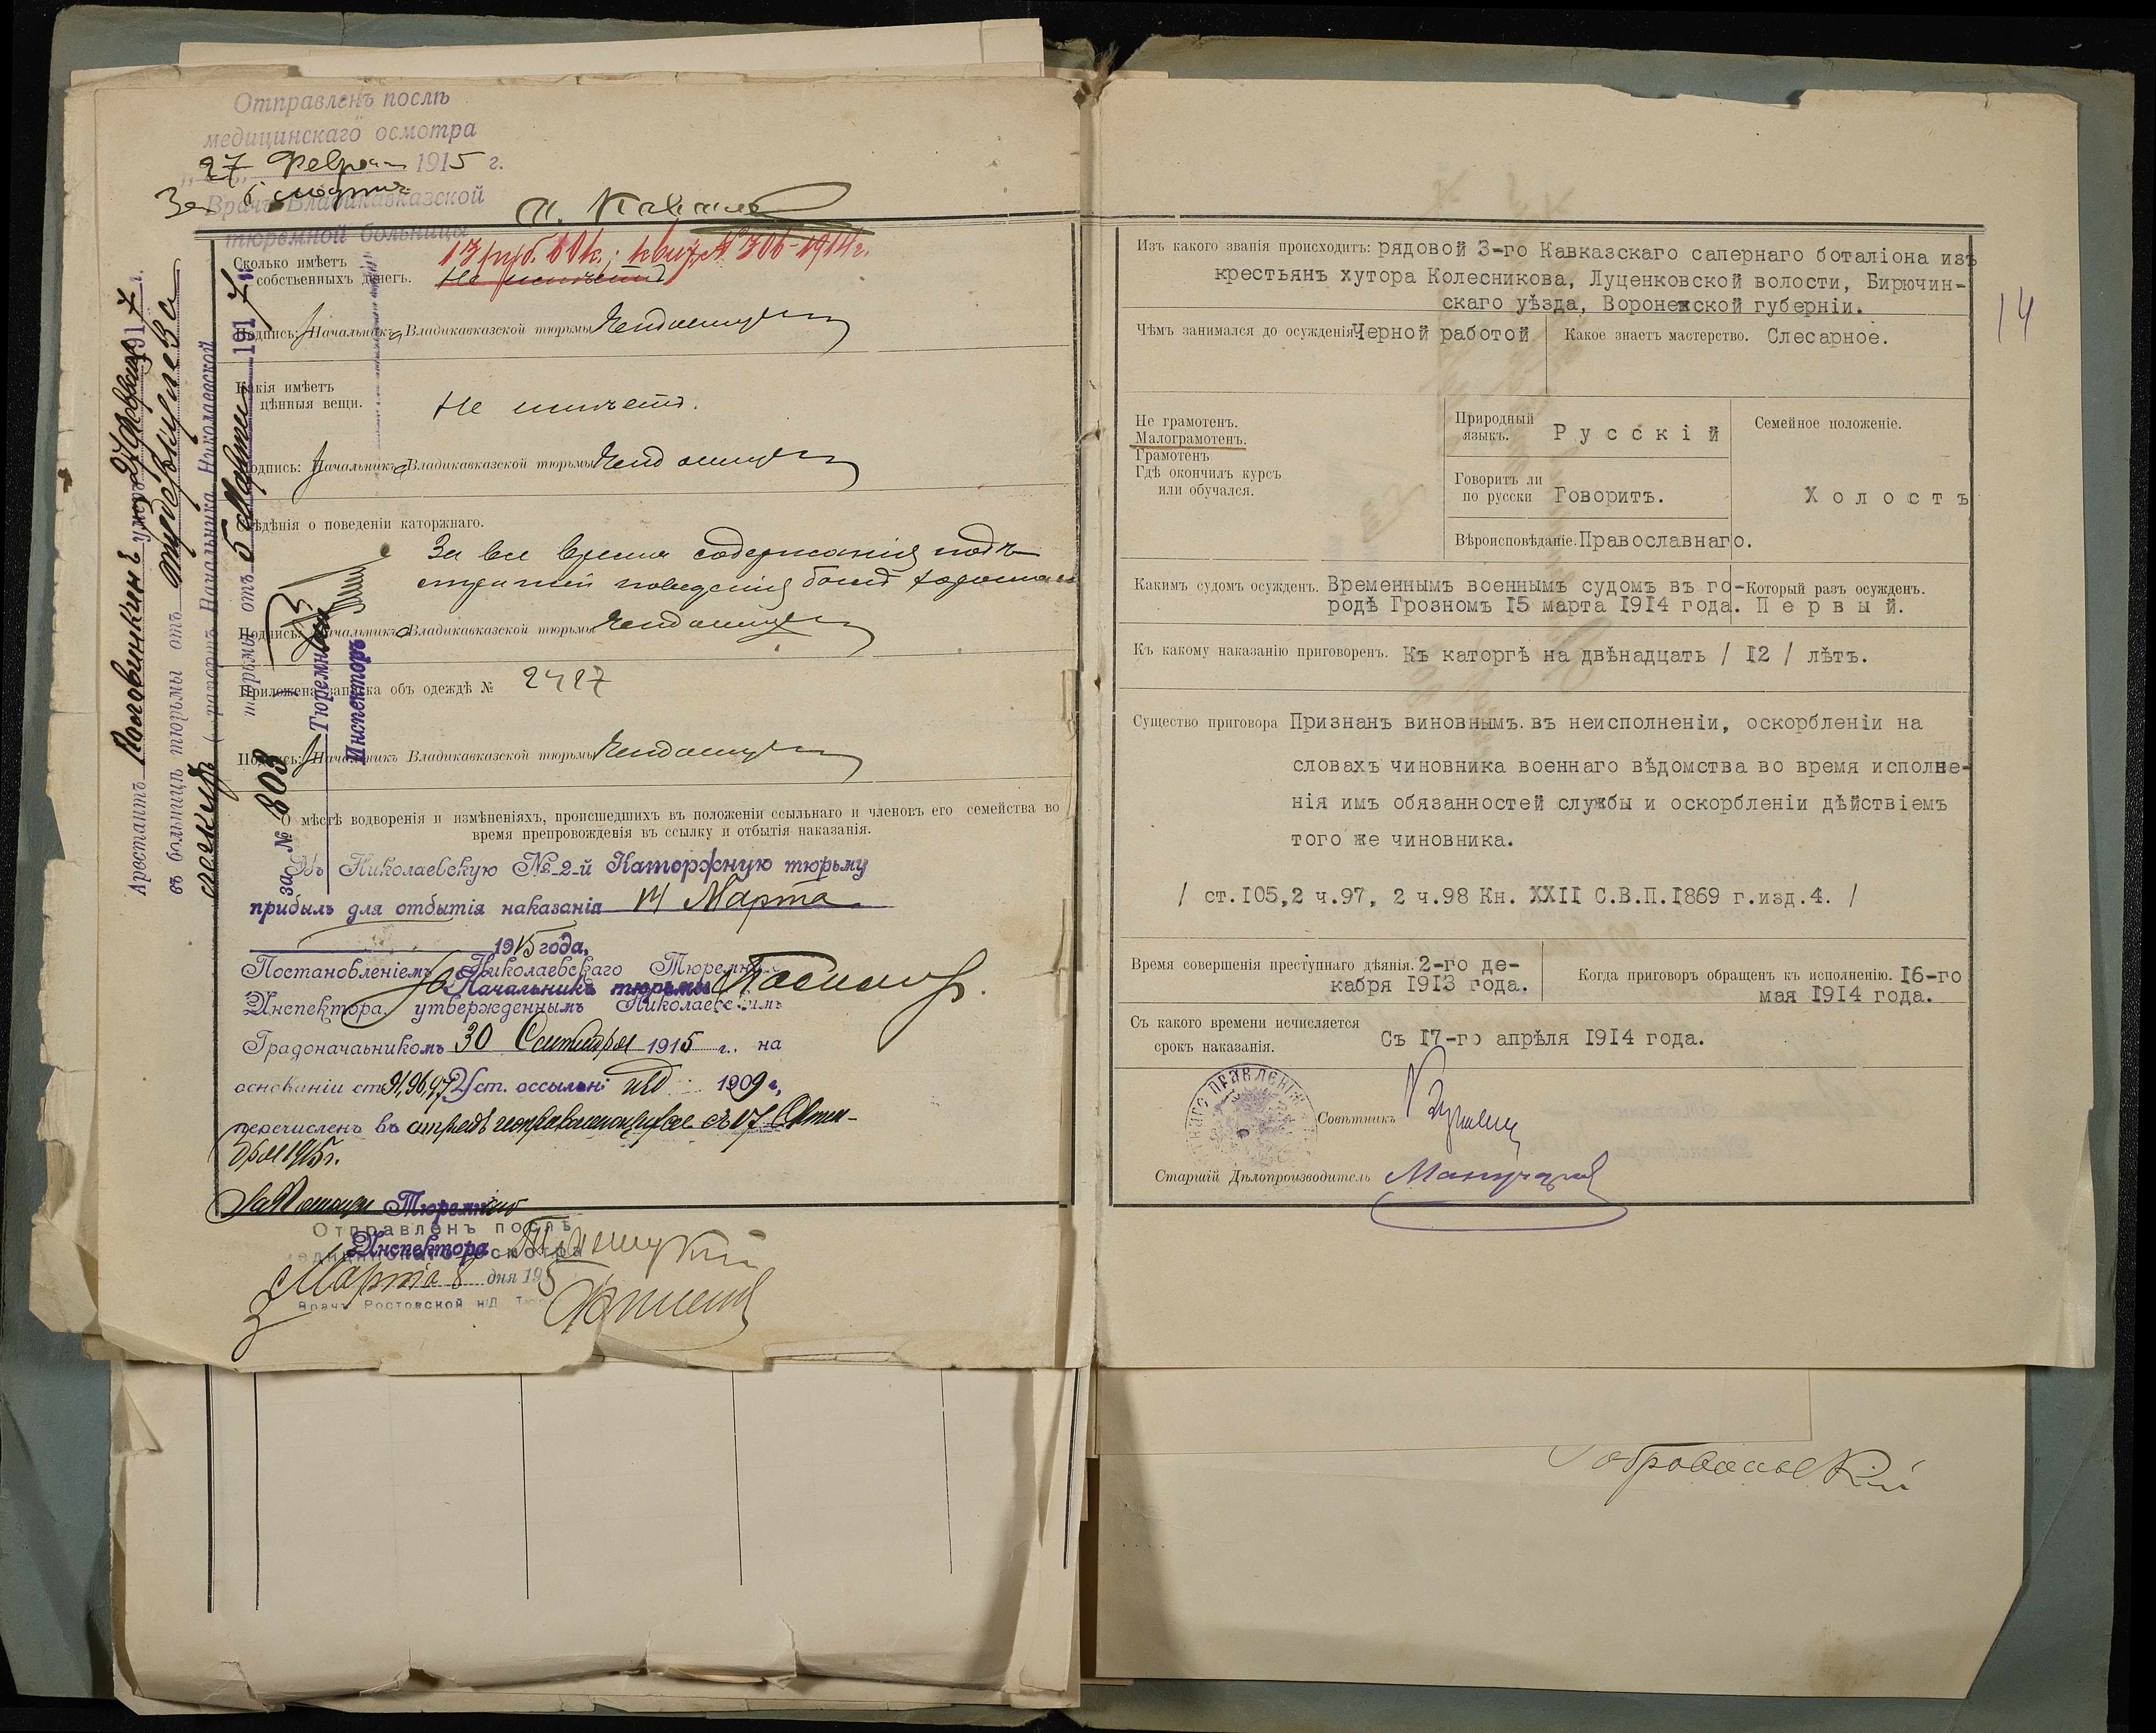 Отправленъ послѣ
медицинскаго осмотра
27 1915 г.
Врачъ Владикавказской
тюремной больницы
Сколько имѣетъ
собственныхъ денегъ.
13 руб. 10 к.; квит. № 306-1914 г.
Не имѣетъ
Подпись: Начальника Владикавказской тюрьмы
Какія имѣетъ
цѣнныя вещи.
Не имѣетъ.
Подпись: Начальника Владикавказской тюрьмы
Свѣдѣнія о поведеніи каторжнаго.
За все время содержанія подъ
стражей поведенія былъ хорошаго
Подпись: Начальника Владикавказской тюрьмы
Приложена записка объ одеждѣ № 2427
Подпись: Начальникъ Владикавказской тюрьмы
О мѣстѣ водворенія и измѣненіяхъ, происшедшихъ въ положеніи ссыльнаго и членовъ его семейства во
время препровожденія въ ссылку и отбытія наказанія.
Въ Николаевскую № 2-й Каторжную тюрьму
прибылъ для отбытія наказанія 14 Марта
1915 года,
Начальникъ тюрьмы
Постановленіемъ Николаевскаго Тюремн.
Инспектора, утвержденнымъ Николаевскимъ
Градоначальникомъ 30 Сентября 1915 г., на
основаніи ст. 91, 96, 97 Уст. оссыльн: изд 1909 г,
перечисленъ въ отрядъ исправляющихся съ 17 Октя-
бря 1915 г.
Тюремнаго
Инспектора
Отправленъ послѣ
медицинскаго осмотра
Марта 8 дня 1915
Врачъ Ростовской н/Д
Арестантъ умеръ 27 Февраля 1917 г.
въ больницѣ тюрьмы отъ туберкулеза
легкихъ (рапортъ Начальника Николаевской
тюрьмы отъ 5 Марта 1917 г.
за № 803
Тюремный
Инспекторъ
Изъ какого званія происходитъ: рядовой 3-го Кавказскаго сапернаго боталіона изъ
крестьянъ хутора Колесникова, Луценковской волости, Бирючин-
скаго уѣзда, Воронежской губерніи.
14
Чѣмъ занимался до осужденія. Черной работой
Какое знаетъ мастерство. Слесарное.
Не грамотенъ.
Малограмотенъ.
Грамотенъ
Гдѣ окончилъ курсъ
или обучался.
Природный
языкъ. Русскій
Говоритъ ли
по русски Говоритъ.
Вѣроисповѣданіе. Православнаго.
Семейное положеніе.
Холостъ
Какимъ судомъ осужденъ. Временнымъ военнымъ судомъ въ го-
родѣ Грозномъ 15 марта 1914 года.
Который разъ осужденъ.
Первый.
Къ какому наказанію приговоренъ. Къ каторгѣ на двѣнадцать / 12 / лѣтъ.
Существо приговора Признанъ виновнымъ въ неисполненіи, оскорбленіи на
словахъ чиновника военнаго вѣдомства во время исполне-
нія имъ обязанностей службы и оскорбленіи дѣйствіемъ
того же чиновника.
/ ст.105,2 ч.97, 2 ч.98 Кн. XXII С.В.П.1869 г.изд.4. /
Время совершенія преступнаго дѣянія. 2-го де-
кабря 1913 года.
Когда приговоръ обращенъ къ исполненію. 16-го
мая 1914 года.
Съ какого времени исчисляется
срокъ наказанія.
Съ 17-го апрѣля 1914 года.
Совѣтникъ
Старшій Дѣлопроизводитель